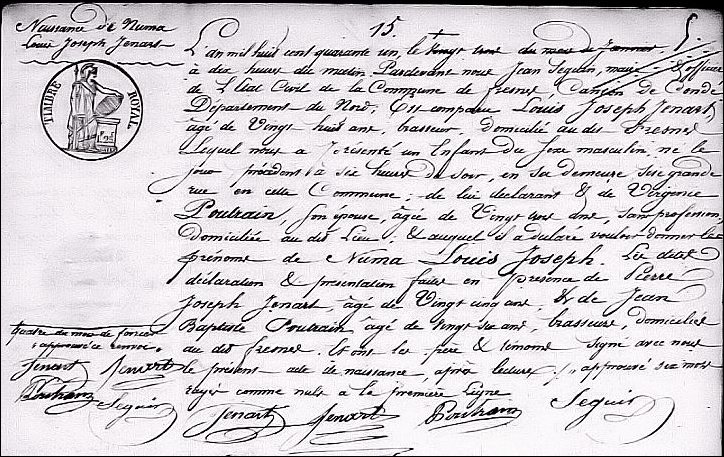 15.
Naissance de Numa
Louis Joseph Jenart
TIMBRE ROYAL
L'an mil huit cent quarante un, le vingt trois du mois de Janvier
à dix heures du matin Pardevant nous Jean Seguin, maire & officier
de l'Etat Civil de la Commune de fresnes Canton de Condé
Département du Nord; Est comparu Louis Joseph Jenart,
âgé de Vingt huit ans, brasseur, domicilié audit Fresnes
Lequel nous a présenté un Enfant du Sexe masculin né le
jour précédent à Six heures du Soir, en sa demeure Sise grande
rue en cette Commune; de lui déclarant & de Virgence
Poutrain, son épouse, âgée de Vingt trois ans, sans profession,
Domiciliée au dit Lieu; & auquel il a déclaré vouloir donner les
prénoms de Numa Louis Joseph. Les dites
déclaration & présentation faites en présence de Pierre
Joseph Jenart, âgé de Vingt cinq ans, & de Jean
Baptiste Poutrain âgé de vingt six ans, brasseurs, domiciliés
au dit fresnes. Et ont les père & témoins signé avec nous
le présent acte de naissance, après lecture. approuvé six mots
rayés comme nuls à la première Ligne
quatre du mois de fevrier
approuvé ce renvoi
Jenart Jenart
Poutrain
Seguin
Jenart Jenart Poutrain Seguin